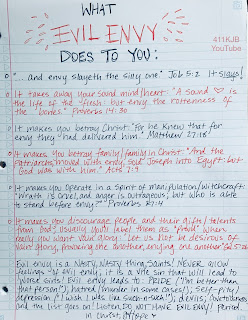 WHAT
EVIL ENVY
411KJB
YouTube
DOES TO YOU:
"... and envy slayeth the silly one." Job 5:2 It slays!
It takes away your sound mind/heart: "A Sound ♡ is
the life of the flesh: but envy the rottenness of
the bones." Proverbs 14:30
It makes you betray Christ: "For he knew that for
envy they had delivered him." Matthew 27:18
It makes you betray family/family in Christ: "And the
patriarchs, moved with envy, sold Joseph into Egypt: but
God was with him." Acts 7:9
It makes you operate in a spirit of manipulation/witchcraft:
"Wrath is cruel, and anger is outrageous; but who is able
to stand before envy?" Proverbs 27:4
It makes you discourage people and their gifts/talents
from God; usually you label them as "Proud" when
really you want your glory: "Let us not be desirous of
vain glory, provoking one another, envying one another." Gal 5:26
Evil envy is a NASTY, NASTY thing, Saints! NEVER allow
feelings of evil envy, it is a vile sin that will lead to
worse sins! Evil envy leads to: PRIDE ("I'm better than
that person!"), hatred (murder in some cases!); self-pity/
depression ("I wish I was like such-n-such!"); devils; covetousness
and the list goes on! Listen, DO NOT HAVE EVIL ENVY! Period.
in Christ,